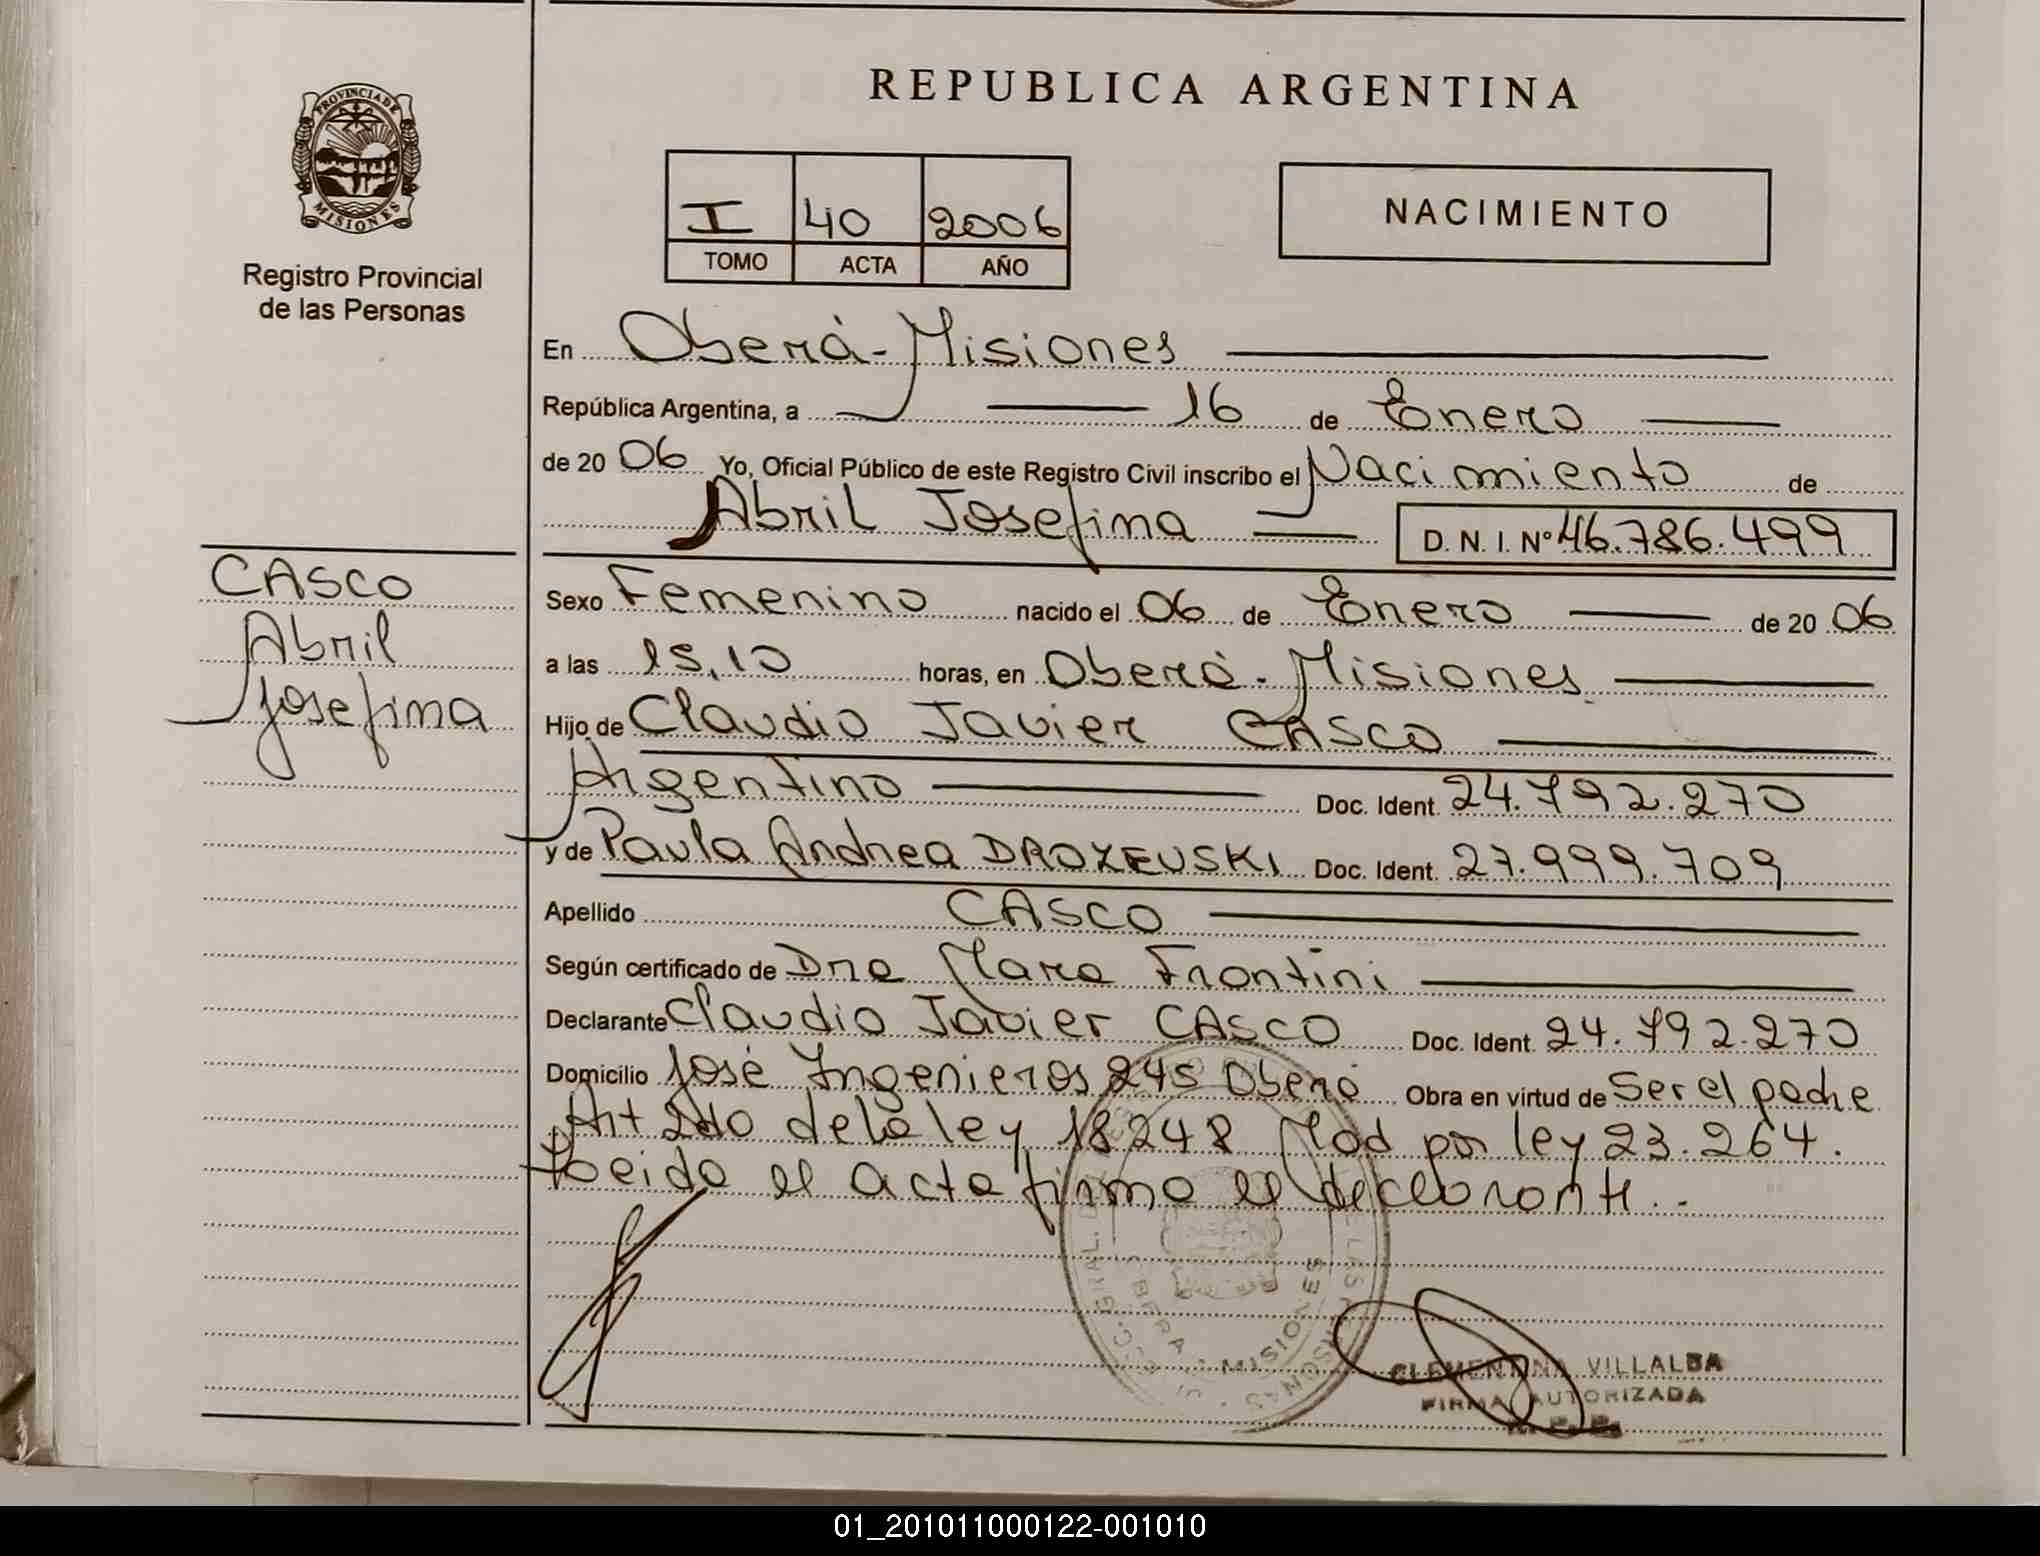 REPUBLICA ARGENTINA
PROVINCIA DE
MISIONES
Registro Provincial
de las Personas
I 40 2006
TOMO ACTA AÑO
NACIMIENTO
En Oberá - Misiones
República Argentina, a 16 de Enero
de 20 06 Yo, Oficial Público de este Registro Civil inscribo el Nacimiento de
Abril Josefina D. N. I. Nº 46.786.499
CASCO
Abril
Josefina
Sexo Femenino nacido el 06 de Enero de 20 06
a las 15,10 horas, en Oberá - Misiones
Hijo de Claudio Javier CASCO
Argentino Doc. Ident. 24.792.270
y de Paula Andrea DROZEUSKI Doc. Ident. 27.999.709
Apellido CASCO
Según certificado de Dra Mara Frontini
Declarante Claudio Javier CASCO Doc. Ident. 24.792.270
Domicilio José Ingenieros 245 Oberá Obra en virtud de Ser el padre
Art 2do de la ley 18248 Mod por ley 23.264.
Leida el acta firma el declarante.-
MISIONES
CLEMENTINA VILLALBA
FIRMA AUTORIZADA
01_201011000122-001010